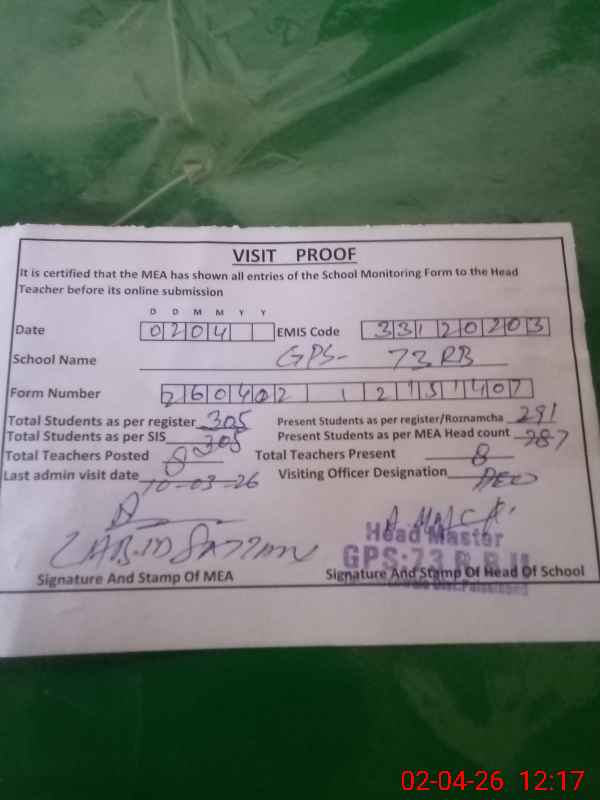 VISIT PROOF
It is certified that the MEA has shown all entries of the School Monitoring Form to the Head
Teacher before its online submission
D D M M Y Y
Date 0 2 0 4 EMIS Code 3 3 1 2 0 2 0 3
School Name GPS- 73 RB
Form Number 2 6 0 4 0 2
Total Students as per register 305 Present Students as per register/Roznamcha 291
Total Students as per SIS 305 Present Students as per MEA Head count 287
Total Teachers Posted 8 Total Teachers Present 8
Last admin visit date 10-03-26 Visiting Officer Designation
Head Master
GPS:73 R.B
Signature And Stamp Of MEA Signature And Stamp Of Head Of School
02-04-26 12:17